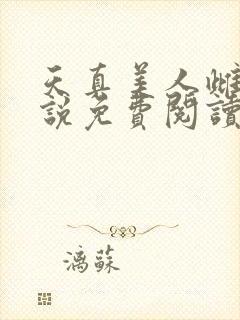 天真美人雌
說免費閱讀
漓蘇